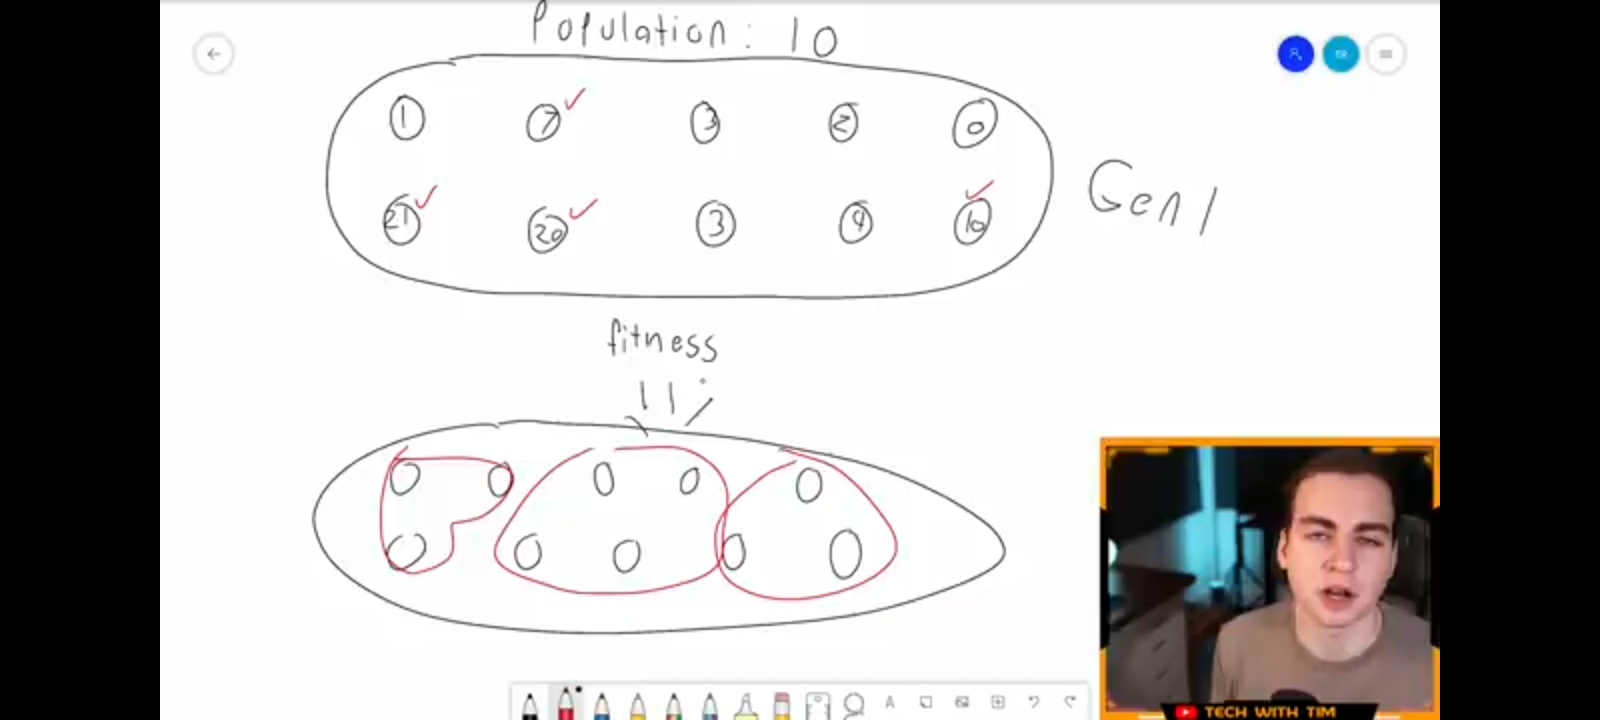 Population: 10
1 7 3 2 0
21 20 3 4 10
Gen 1
fitness
TECH WITH TIM